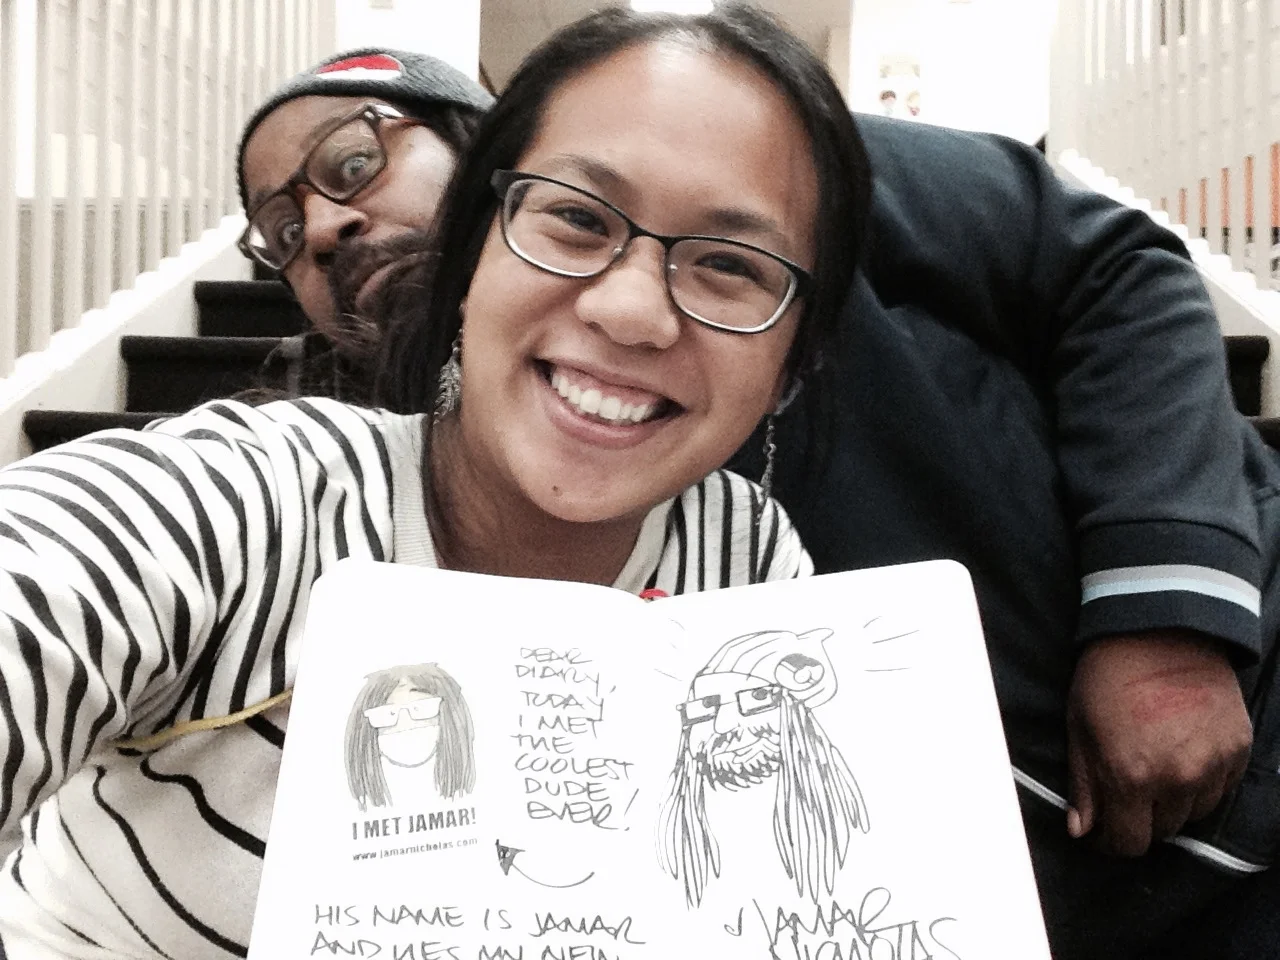 DEAR
DIARY,
TODAY
I MET
THE
COOLEST
DUDE
EVER!
I MET JAMAR!
www.jamarnicholas.com
HIS NAME IS JAMAR
AND HES MY NEW
JAMAR
NICHOLAS